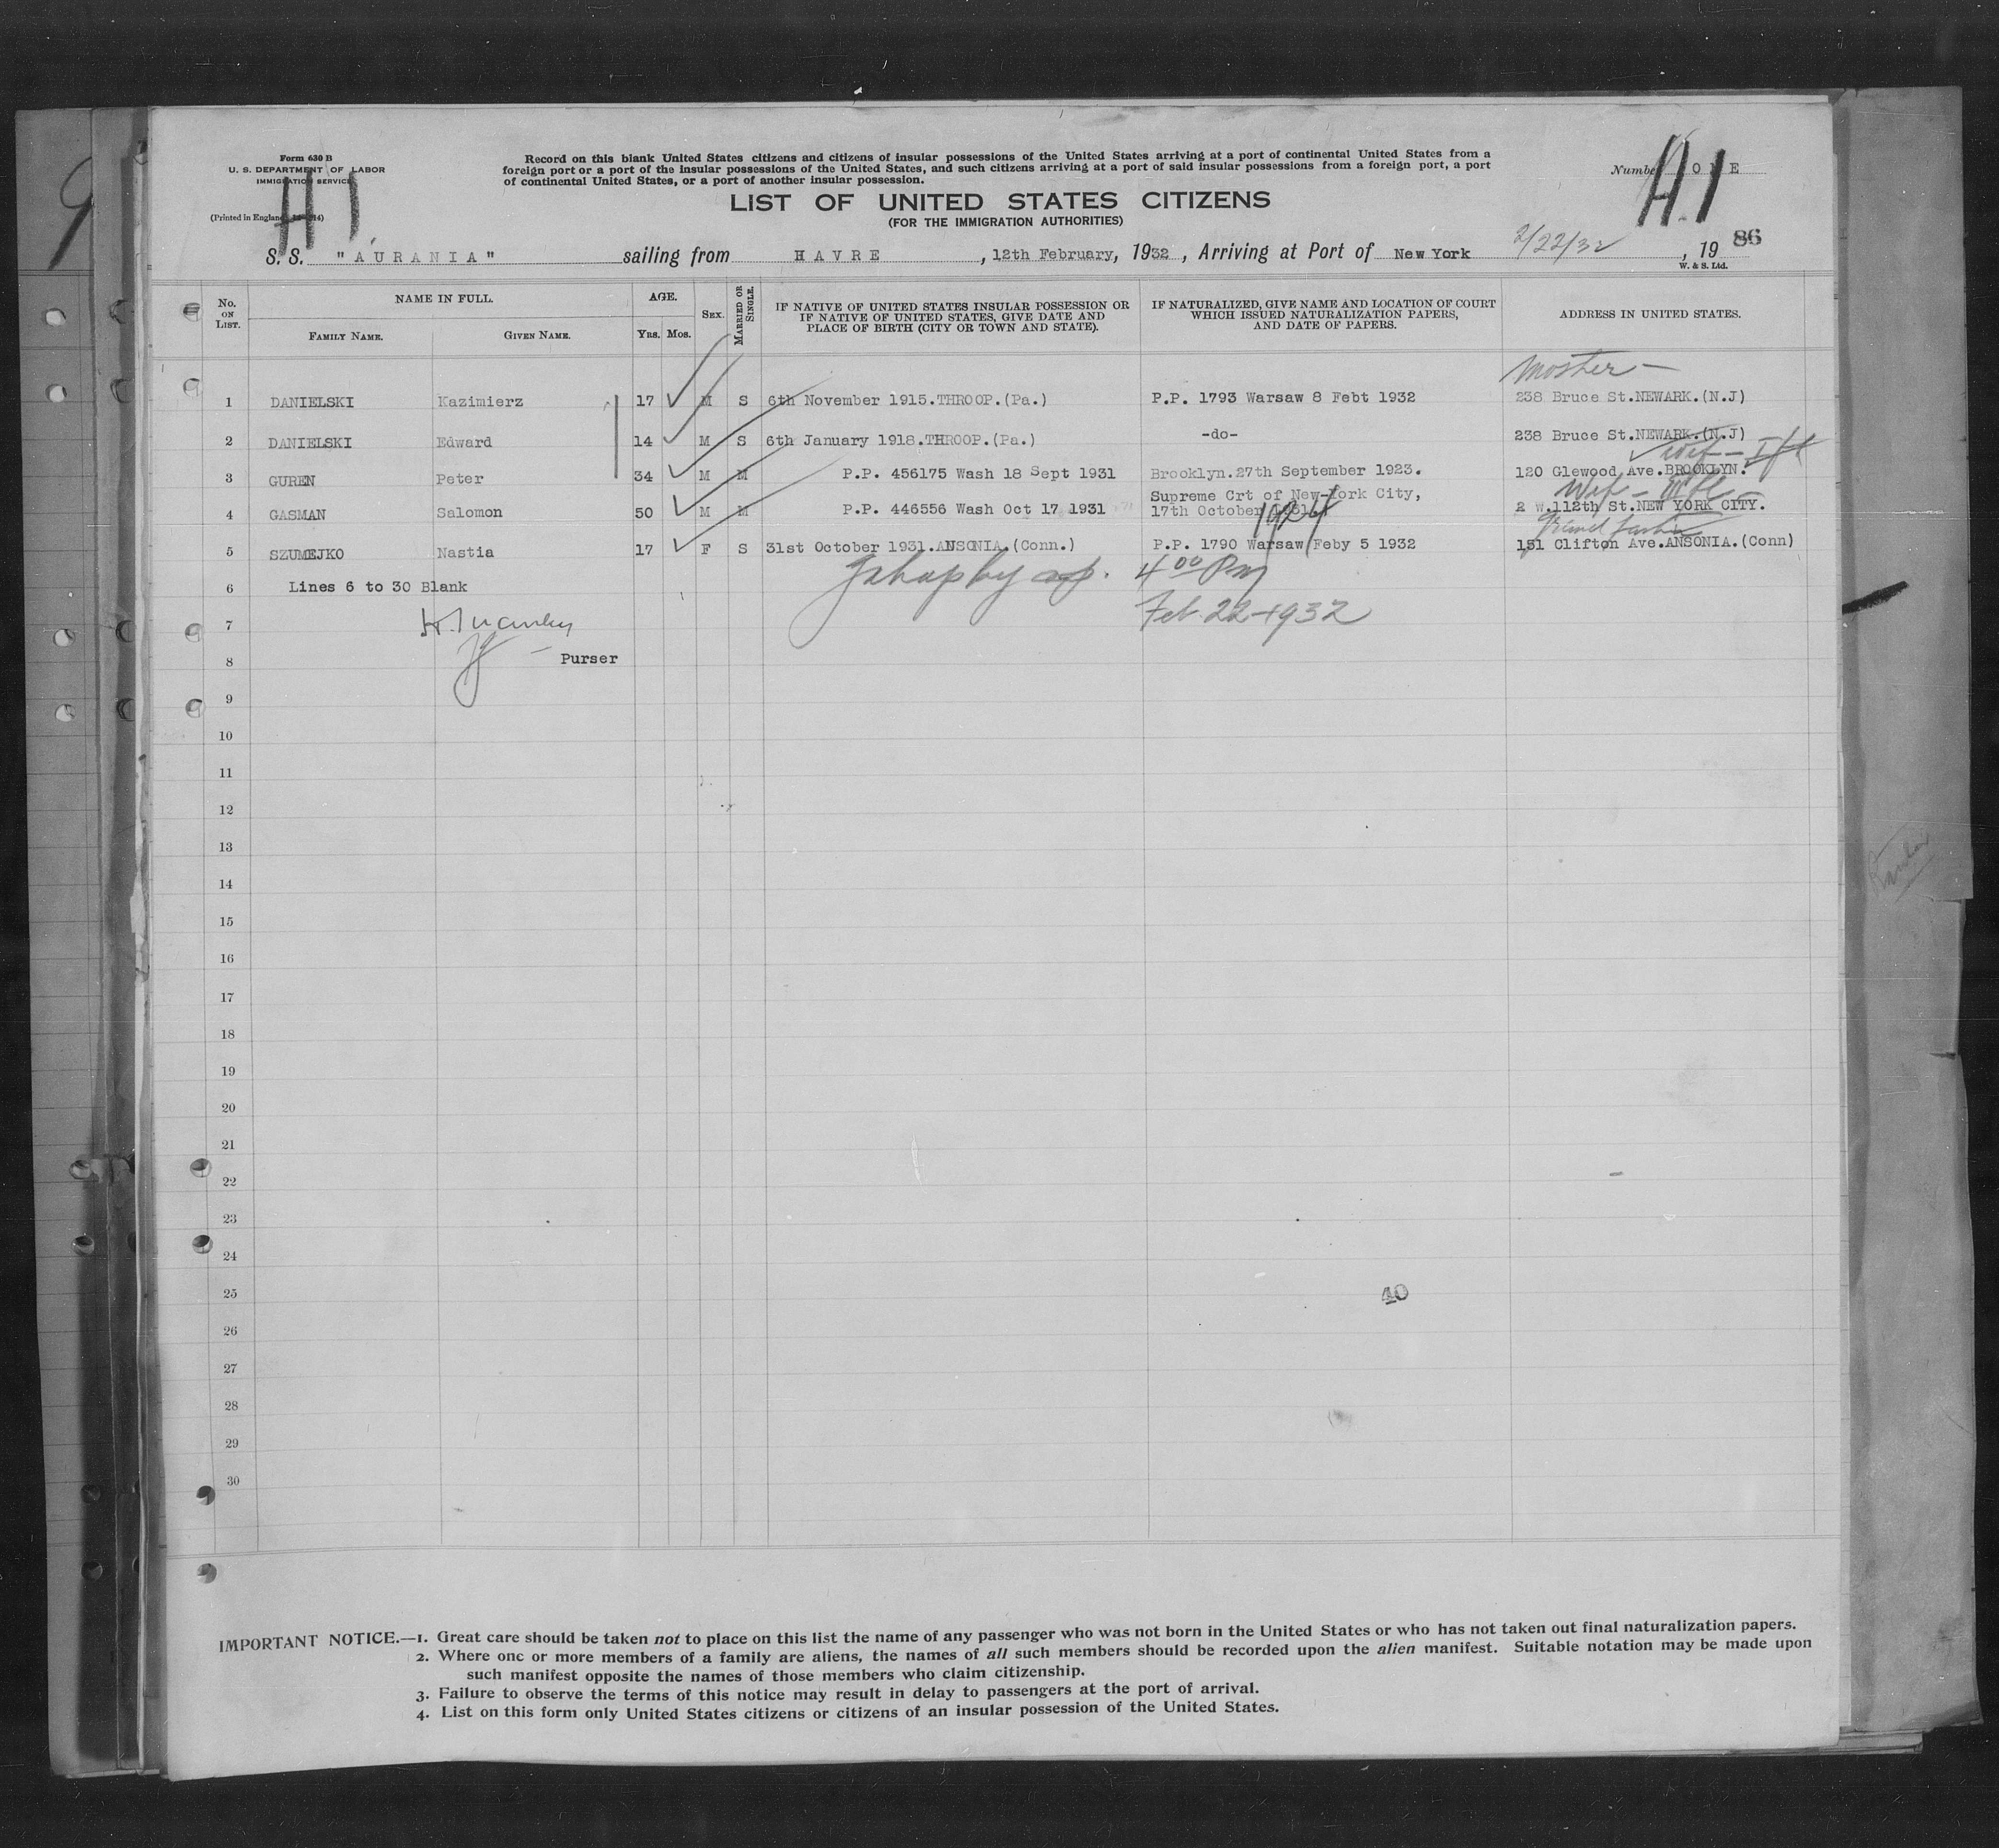 Form 630 B
U. S. DEPARTMENT OF LABOR
IMMIGRATION SERVICE
(Printed in England)
H 1
Record on this blank United States citizens and citizens of insular possessions of the United States arriving at a port of continental United States from a
foreign port or a port of the insular possessions of the United States, and such citizens arriving at a port of said insular possessions from a foreign port, a port
of continental United States, or a port of another insular possession.
Number O E
H.1
LIST OF UNITED STATES CITIZENS
(FOR THE IMMIGRATION AUTHORITIES)
S. S. "AURANIA" sailing from HAVRE, 12th February, 1932, Arriving at Port of New York 2/22/32, 19 86
W. & S. Ltd.
No. ON LIST. NAME IN FULL. AGE. SEX. MARRIED OR SINGLE. IF NATIVE OF UNITED STATES INSULAR POSSESSION OR IF NATIVE OF UNITED STATES, GIVE DATE AND PLACE OF BIRTH (CITY OR TOWN AND STATE). IF NATURALIZED, GIVE NAME AND LOCATION OF COURT WHICH ISSUED NATURALIZATION PAPERS, AND DATE OF PAPERS. ADDRESS IN UNITED STATES.
FAMILY NAME. GIVEN NAME. YRS. MOS.
Mother —
1 DANIELSKI Kazimierz 17 M S 6th November 1915.THROOP.(Pa.) P.P. 1793 Warsaw 8 Febt 1932 238 Bruce St.NEWARK.(N.J)
2 DANIELSKI Edward 14 M S 6th January 1918.THROOP.(Pa.) -do- 238 Bruce St.NEWARK.(N.J)
Wif —
3 GUREN Peter 34 M M P.P. 456175 Wash 18 Sept 1931 Brooklyn.27th September 1923. 120 Glewood Ave.BROOKLYN.
Wif —
Supreme Crt of New-York City,
4 GASMAN Salomon 50 M M P.P. 446556 Wash Oct 17 1931 17th October 1924 2 W.112th St.NEW YORK CITY.
5 SZUMEJKO Nastia 17 F S 31st October 1931.ANSONIA.(Conn.) P.P. 1790 Warsaw Feby 5 1932 151 Clifton Ave.ANSONIA.(Conn)
6 Lines 6 to 30 Blank 4 00 Pm
7 Feb. 22-1932
8 Purser
9
10
11
12
13
14
15
16
17
18
19
20
21
22
23
24
25 40
26
27
28
29
30
IMPORTANT NOTICE.—1. Great care should be taken not to place on this list the name of any passenger who was not born in the United States or who has not taken out final naturalization papers.
2. Where one or more members of a family are aliens, the names of all such members should be recorded upon the alien manifest. Suitable notation may be made upon
such manifest opposite the names of those members who claim citizenship.
3. Failure to observe the terms of this notice may result in delay to passengers at the port of arrival.
4. List on this form only United States citizens or citizens of an insular possession of the United States.